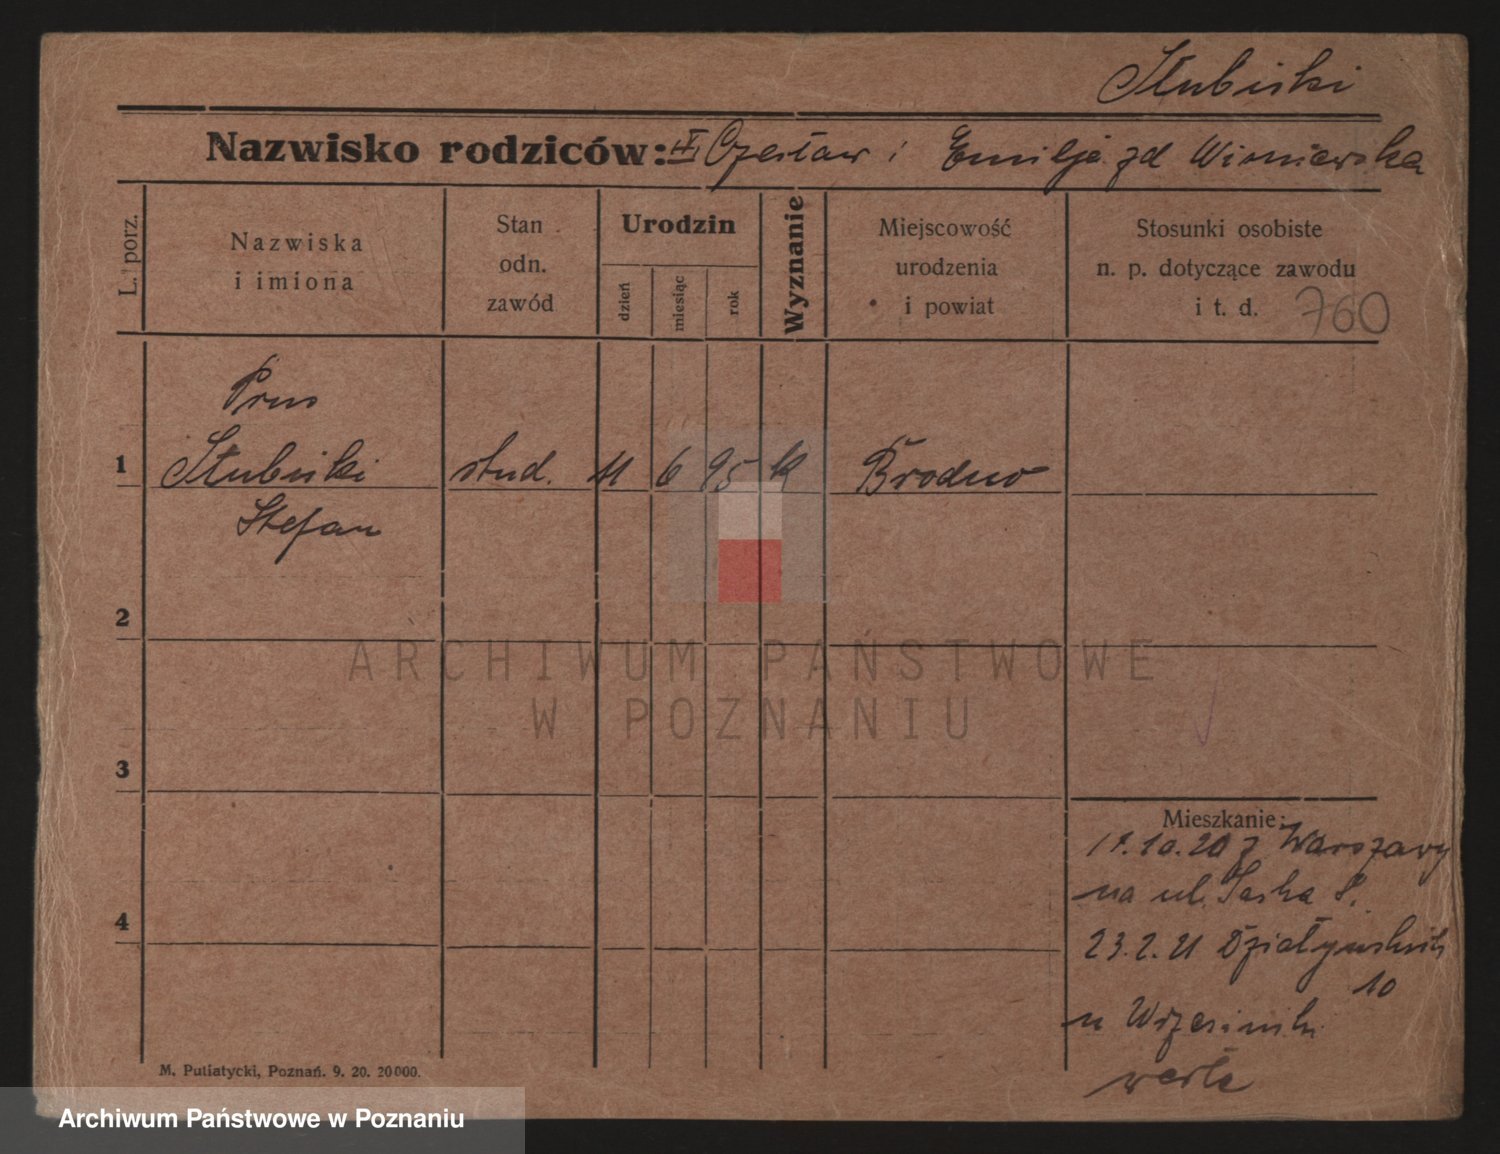 Słubicki
Nazwisko rodziców: Czesław i Emilja zd Wiśniewska
L. porz.
Nazwiska
i imiona
Stan
odn.
zawód
Urodzin
dzień
miesiąc
rok
Wyznanie
Miejscowość
urodzenia
i powiat
Stosunki osobiste
n. p. dotyczące zawodu
i t. d. 760
Prus
1 Słubicki stud. 11 6 95 k
Stefan
2
ARCHIWUM PAŃSTWOWE
W POZNANIU
3
Mieszkanie:
10.20 z Warszawy
na ul.
4
23.2.21 Działyńskich
10
u
M. Putiatycki, Poznań. 9. 20. 20000.
Archiwum Państwowe w Poznaniu